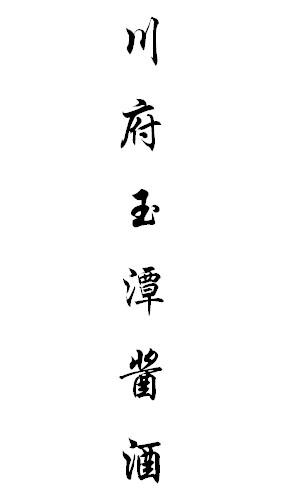 川府玉潭酱酒